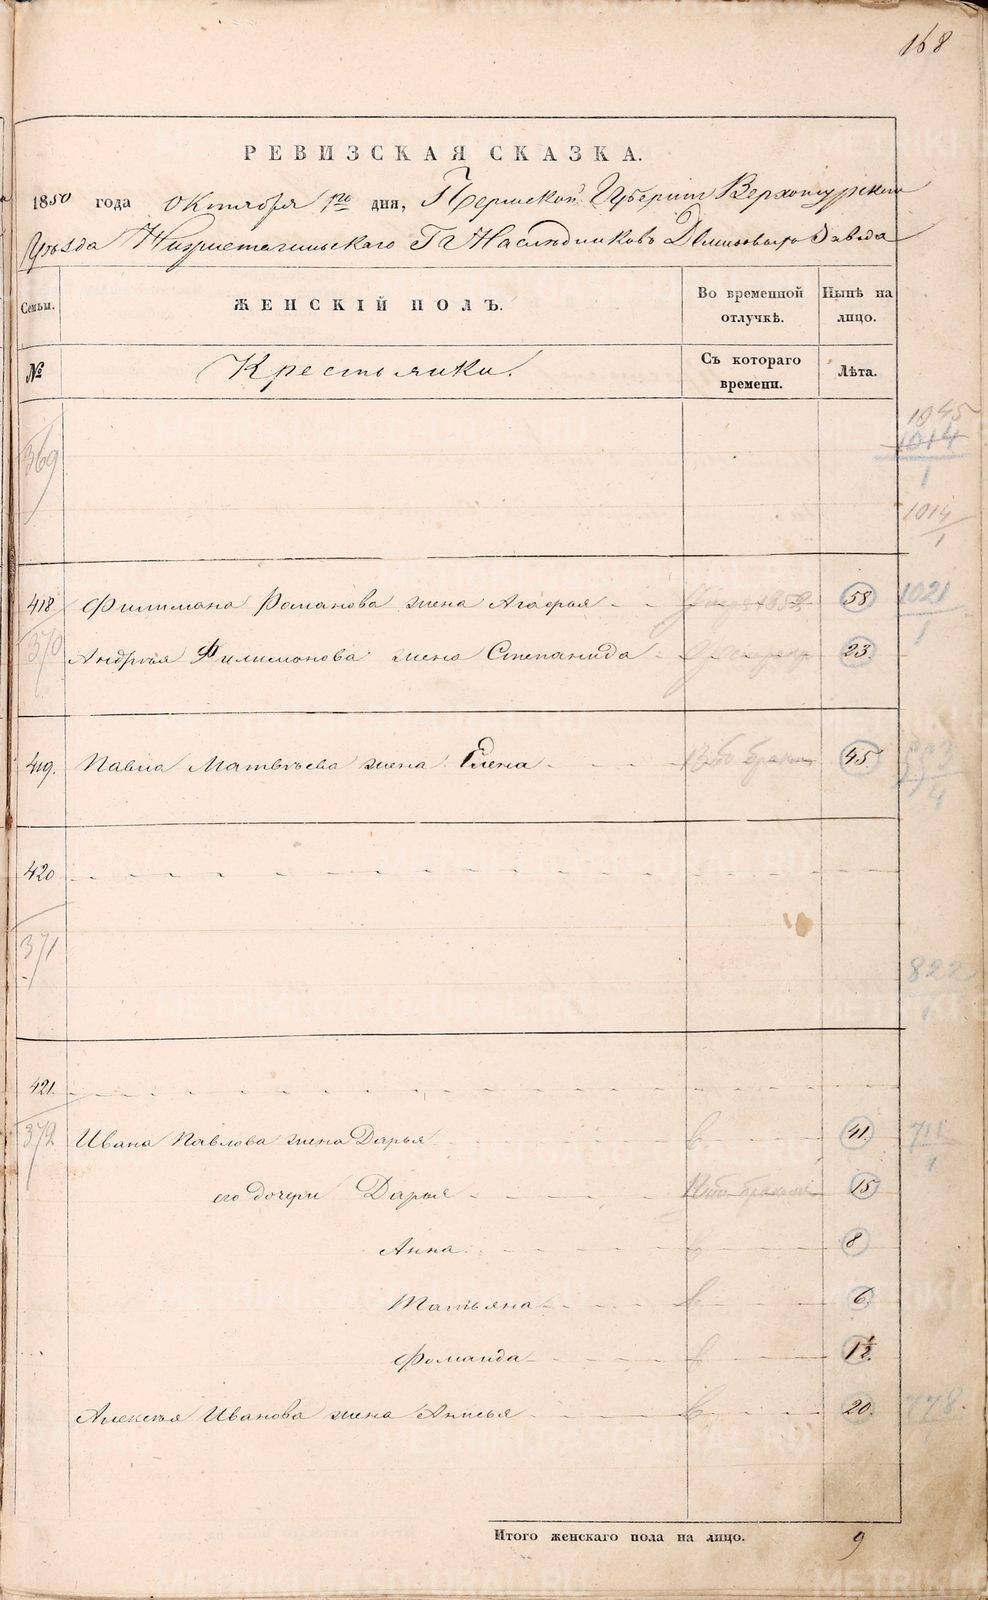 168
РЕВИЗСКАЯ СКАЗКА.
1850 года Октября 1го дня, Пермской Губернии Верхотурского
Уезда Нижнетагильскаго Гг Наследниковъ Демидовыхъ Завода
Семьи. ЖЕНСКІЙ ПОЛЪ. Во временной отлучкѣ. Нынѣ на лицо.
№ Крестьянки. Съ котораго времени. Лѣта.
369
1045
1014
1
1014
1
418 Филимона Романова жена Агафья 58 1021
1
370 Андрѣя Филимонова жена Степанида 23.
419. Павла Матвѣева жена Елена 45.
4
420
371
822
421.
372 Ивана Павлова жена Дарья 41. 711
1
его дочери Дарья 15
Анна 8
Татьяна 6.
Фоманда 1½.
Алексѣя Иванова жена Анисья 20. 778.
Итого женскаго пола на лицо. 9
METRIKI.GASO-URAL.RU